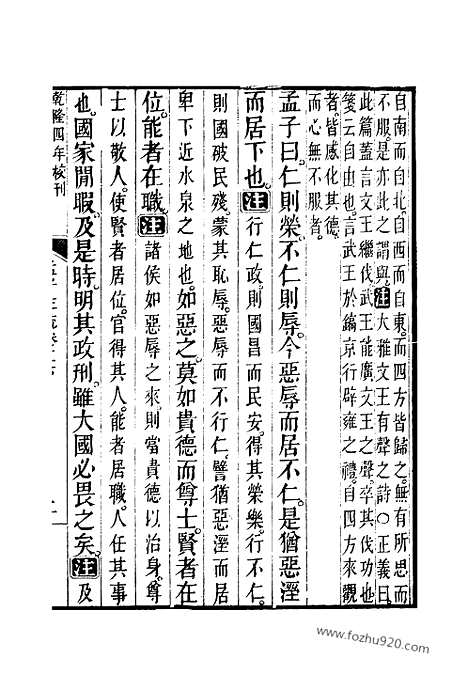 自南而自北自西而自東而四方皆歸之無有所思而
不服是亦此之謂與注大雅文王有聲之詩○正義曰
此篇蓋言文王繼伐武王能廣文王之聲卒其伐功也
箋云自由也言武王於鎬京行辟雍之禮自四方來觀
者皆感化其德
而心無不服者
孟子曰仁則榮不仁則辱今惡辱而居不仁是猶惡溼
而居下也注行仁政則國昌而民安得其榮樂行不仁
則國破民殘蒙其恥辱惡辱而不行仁譬猶惡溼而居
卑下近水泉之地也如惡之莫如貴德而尊士賢者在
位能者在職注諸侯如惡辱之來則當貴德以治身尊
士以敬人使賢者居位官得其人能者居職人任其事
也國家閒暇及是時明其政刑雖大國必畏之矣注及
乾隆四年校刊
www.fozhu920.com